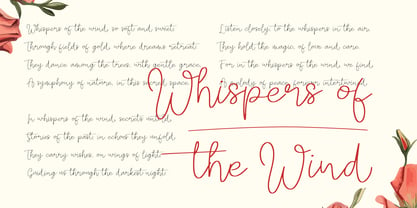 Whispers of the wind, so soft and sweet
Through fields of gold, where dreams retreat
They dance among the trees with gentle grace
A symphony of nature, in this sacred space
In whispers of the wind, secrets untold
Stories of the past in echoes they unfold
They carry wishes, on wings of light
Guiding us through the darkest night
Listen closely, to the whispers in the air
They hold the magic of love and care
For in the whispers of the wind, we find
A melody of peace, forever intertwined
Whispers of
the Wind